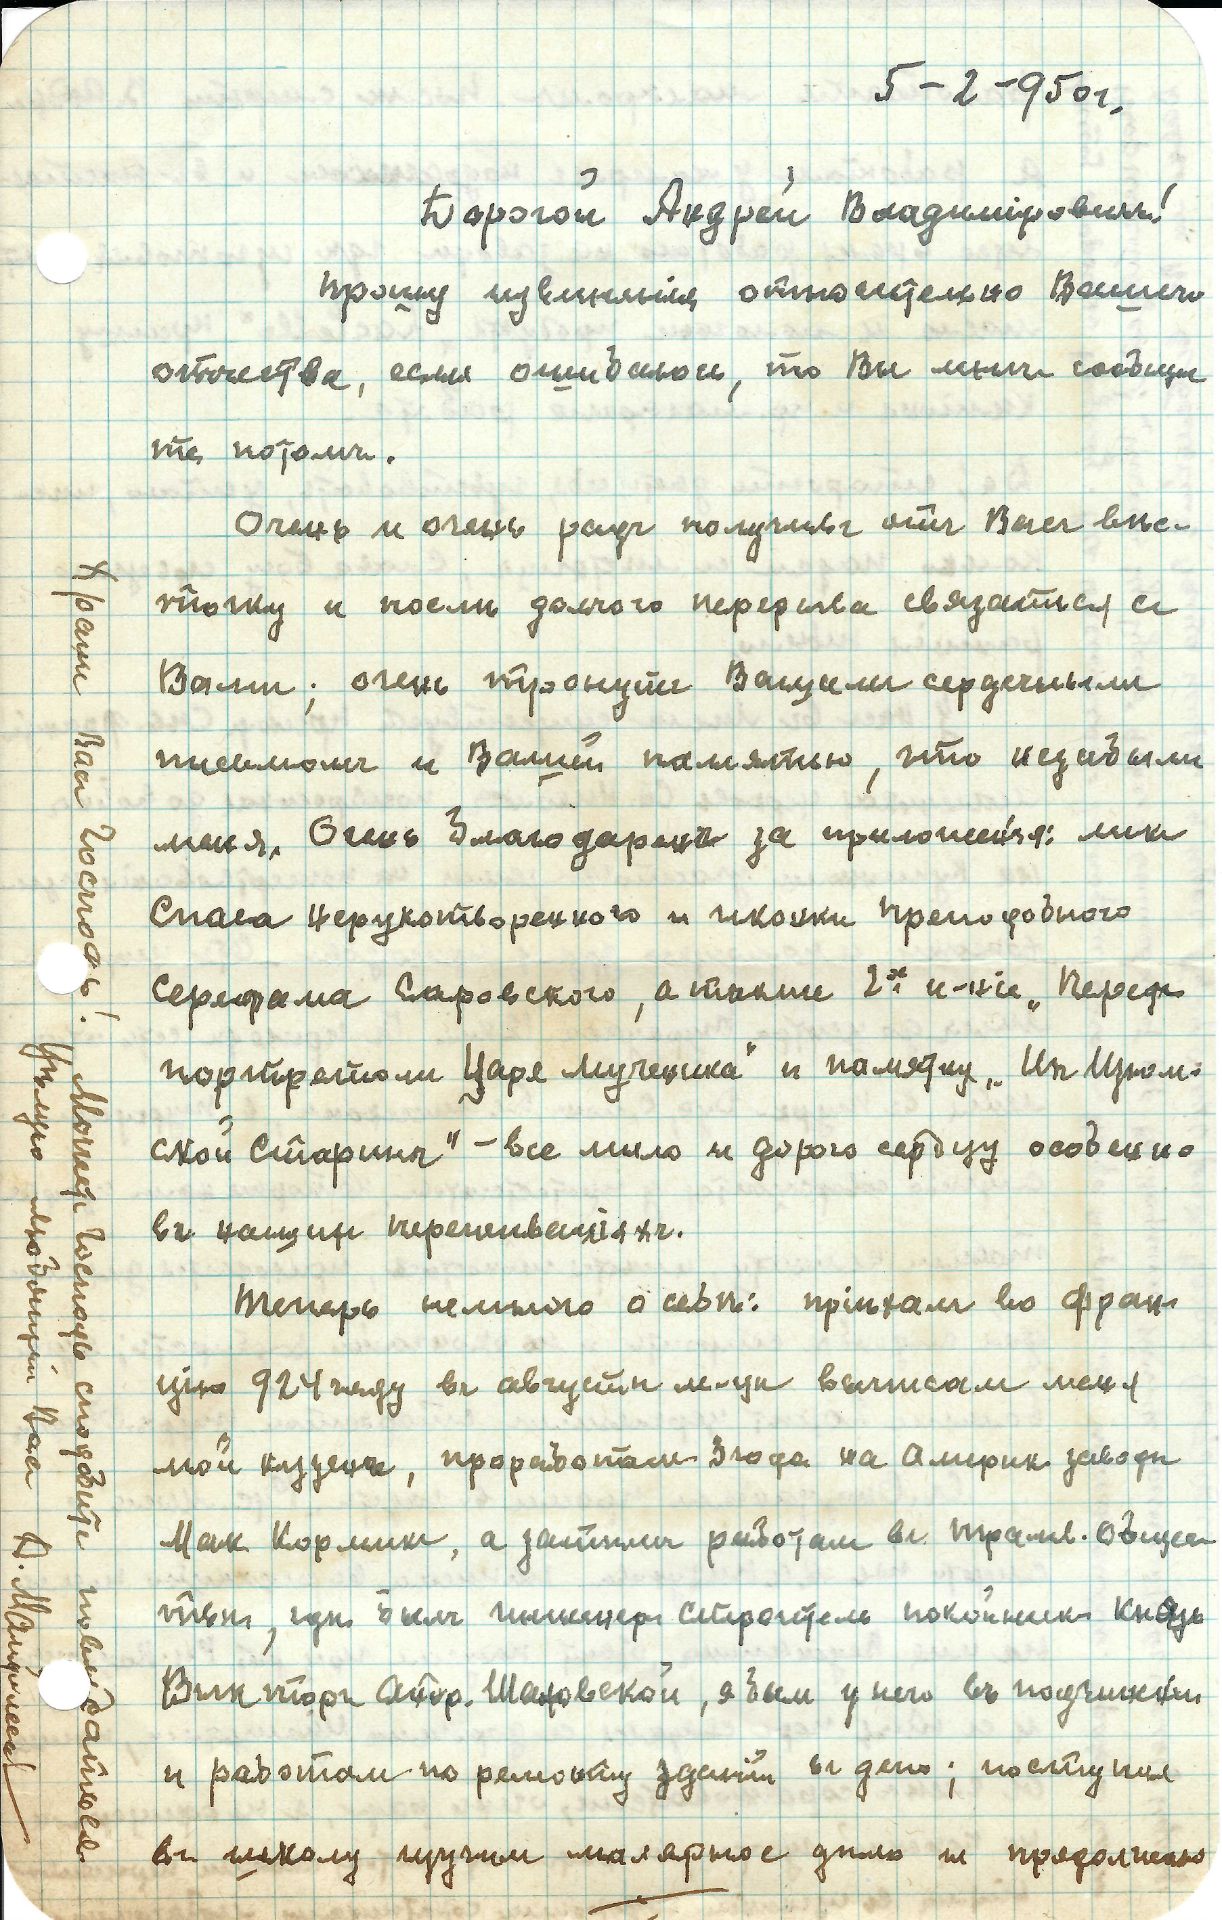 5-2-950г.
Дорогой Андрей Владимiровичъ!
Прошу извиненiя относительно Вашего
отчества, если ошибаюсь, то Вы мнѣ сообщи
те потомъ.
Очень и очень радъ получивъ отъ Васъ вѣс-
точку и послѣ долгого перерыва связаться съ
Вами; очень тронутъ Вашимъ сердечнымъ
письмомъ и Вашей памятью, что незабыли
меня. Очень благодаренъ за приложенiя: ликъ
Спаса Нерукотворенного и иконки Преподобного
Серафима Саровского, а также 2х и-нiе „Передъ
портретомъ Царя Мученика" и памятку „Изъ Цуком-
ской Старины" - все мило и дорого сердцу особенно
въ нашихъ переживанiяхъ.
Теперь немного о себѣ: прiѣхалъ во Фран
цiю 924 году въ августѣ м-цѣ выписалъ меня
мой кузенъ, проработалъ 3 года на Америк. заводѣ
Мак Кормикъ, а затѣмъ работалъ въ Трамв. Общес
твѣ, гдѣ былъ инженеръ Строитель покойникъ Князь
Викторъ Шаховской, я былъ у него въ подчиненiи
и работалъ по ремонту зданiй въ депо; поступил
въ школу изучилъ малярное дѣло и продолжаю
Храни Васъ Господь! Можетъ Господь сподобитъ повидаться.
Цѣлую любящiй Васъ